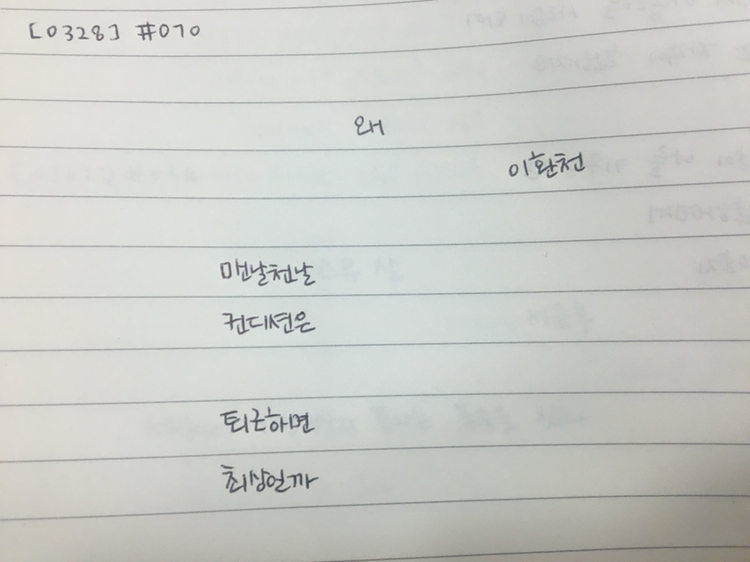 [0328] #070
왜
이환천
맨날천날
컨디션은
퇴근하면
최상일까